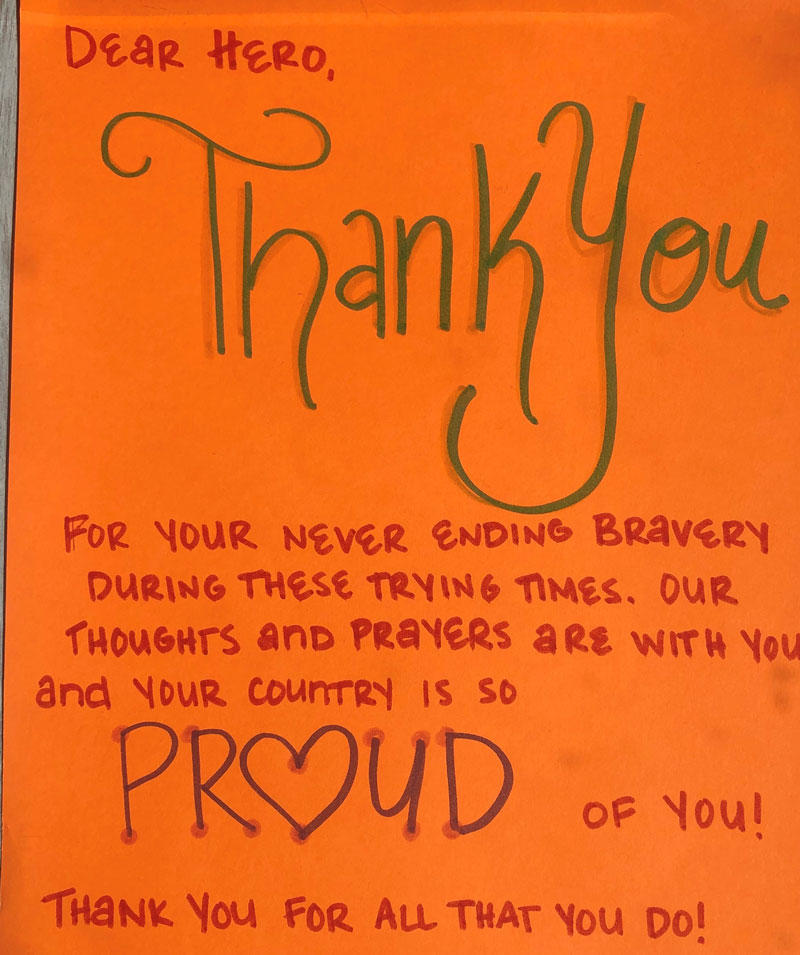 Dear Hero,
Thank You
For your never ending bravery
during these trying times. Our
thoughts and prayers are with you
and your country is so
PR♡UD of you!
Thank you for all that you do!